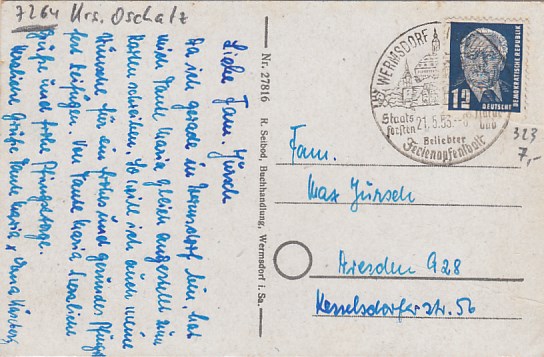 7264 Krs. Oschatz
Liebe Fam. Jursch
Da ich gerade in Wermsdorf bin hat
mich Tante Maria gleich angestellt eine
Karte schreiben. So will ich auch meine
Wünsche für ein frohes und gesundes Pfingst-
fest beifügen. Von Tante Maria
Grüße und frohe Pfingsttage.
Grüße Tante Maria
Nr. 27816 R. Seibod, Buchhandlung, Wermsdorf i. Sa.
WERMSDORF
Staats
forsten
21.5.53
und
Beliebter
Ferienaufenthalt
12
DEUTSCHE
DEMOKRATISCHE REPUBLIK
323
7,-
Fam.
Max Jursch
Dresden A 28
Kesselsdorferstr. 56